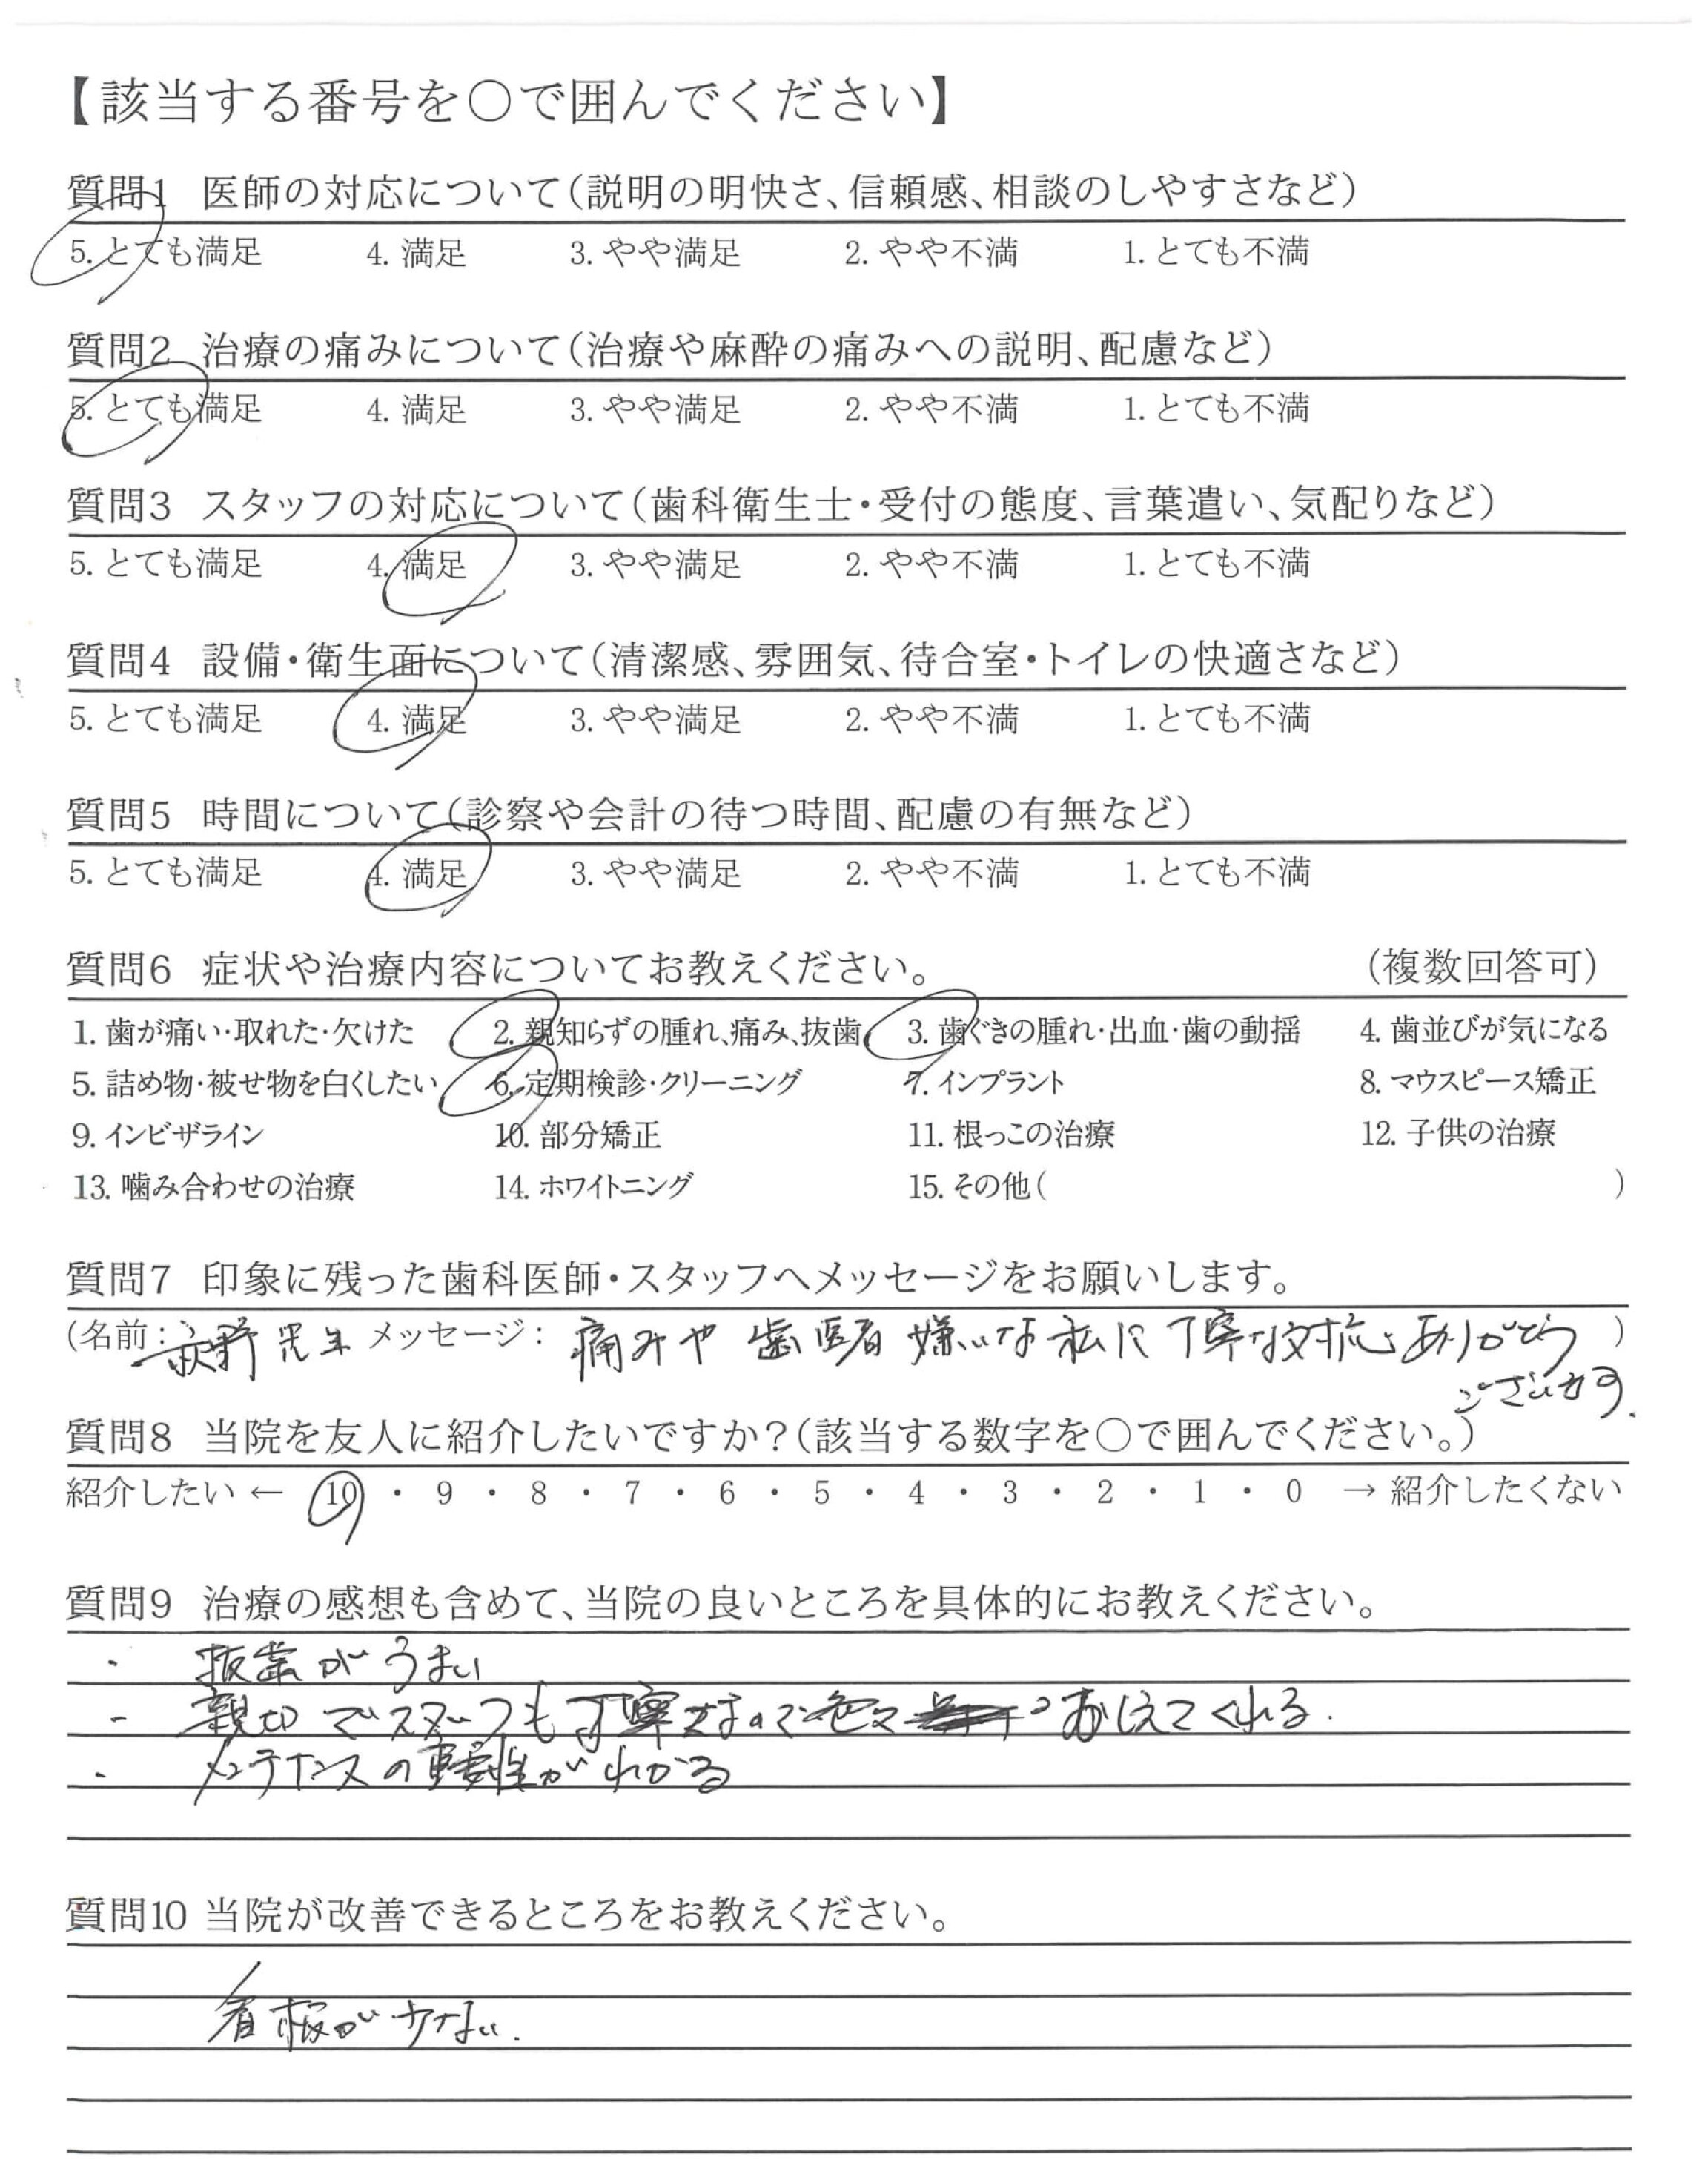 【該当する番号を〇で囲んでください】
質問1 医師の対応について(説明の明快さ、信頼感、相談のしやすさなど)
5. とても満足 4. 満足 3. やや満足 2. やや不満 1. とても不満
質問2 治療の痛みについて(治療や麻酔の痛みへの説明、配慮など)
5. とても満足 4. 満足 3. やや満足 2. やや不満 1. とても不満
質問3 スタッフの対応について(歯科衛生士・受付の態度、言葉遣い、気配りなど)
5. とても満足 4. 満足 3. やや満足 2. やや不満 1. とても不満
質問4 設備・衛生面について(清潔感、雰囲気、待合室・トイレの快適さなど)
5. とても満足 4. 満足 3. やや満足 2. やや不満 1. とても不満
質問5 時間について(診察や会計の待つ時間、配慮の有無など)
5. とても満足 4. 満足 3. やや満足 2. やや不満 1. とても不満
質問6 症状や治療内容についてお教えください。 (複数回答可)
1. 歯が痛い・取れた・欠けた 2. 親知らずの腫れ、痛み、抜歯 3. 歯ぐきの腫れ・出血・歯の動揺 4. 歯並びが気になる
5. 詰め物・被せ物を白くしたい 6. 定期検診・クリーニング 7. インプラント 8. マウスピース矯正
9. インビザライン 10. 部分矯正 11. 根っこの治療 12. 子供の治療
13. 噛み合わせの治療 14. ホワイトニング 15. その他( )
質問7 印象に残った歯科医師・スタッフへメッセージをお願いします。
(名前: 先生 メッセージ: 痛みや 歯医者 嫌いな私に 丁寧な対応 ありがとう )
ございます.
質問8 当院を友人に紹介したいですか?(該当する数字を〇で囲んでください。)
紹介したい ← 10 ・ 9 ・ 8 ・ 7 ・ 6 ・ 5 ・ 4 ・ 3 ・ 2 ・ 1 ・ 0 → 紹介したくない
質問9 治療の感想も含めて、当院の良いところを具体的にお教えください。
・ 抜歯がうまい
・ 親切でスタッフも丁寧なので色々 おしえてくれる.
・ メンテナンスの重要性がわかる
質問10 当院が改善できるところをお教えください。
看板が少ない.